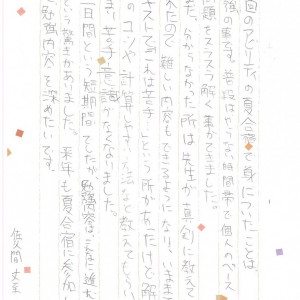 回のアビリティの夏合宿で身についたことは、
強の事です。普段はやらない時間帯で個人のペース
問題をスラスラ解く事ができました。
も、分からなかった所は先生が真剣に教えて
れたので難しい内容もできるようになり、いままで
キストで「これは苦手…」という所があったけど解
のコツや計算しやすい方法など教えてもらい
ます、苦手意識がなくなりました。
日間という短期間でしたが勉強内容はこんなに進む
いう驚きがありました。来年も夏合宿に参加し
勉強内容を深めたいです。